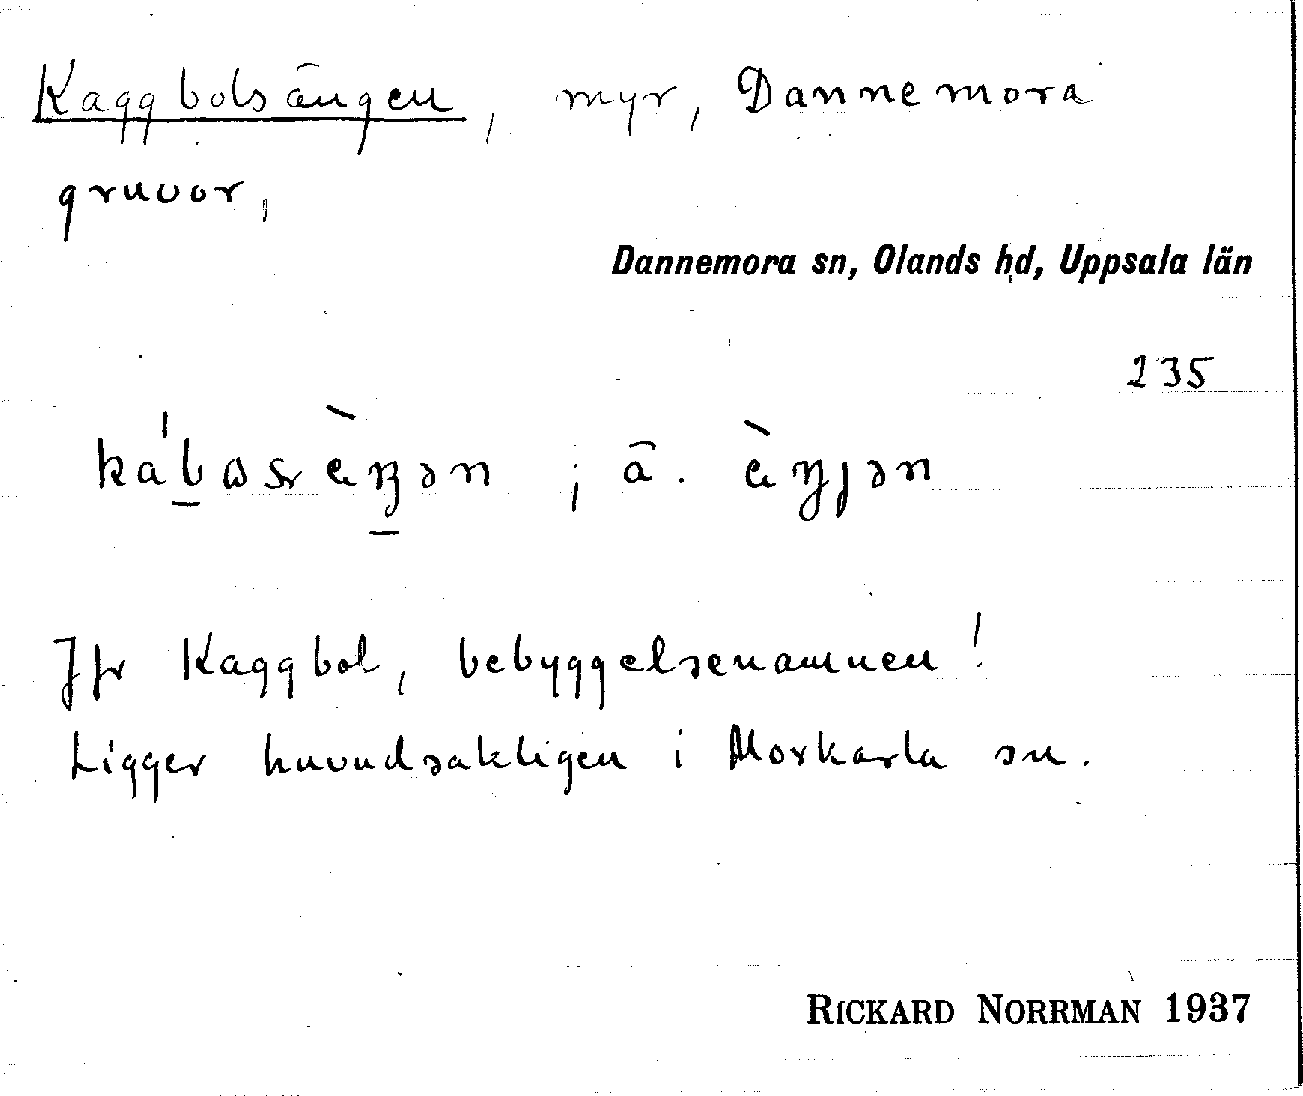 Kaggbolsängen, myr, Dannemora
gruvor,
Dannemora sn, Olands hd, Uppsala län
235
; ā.
Jfr Kaggbol, bebyggelsenamnen!
Ligger huvudsakligen i Morkarla sn.
RICKARD NORRMAN 1937